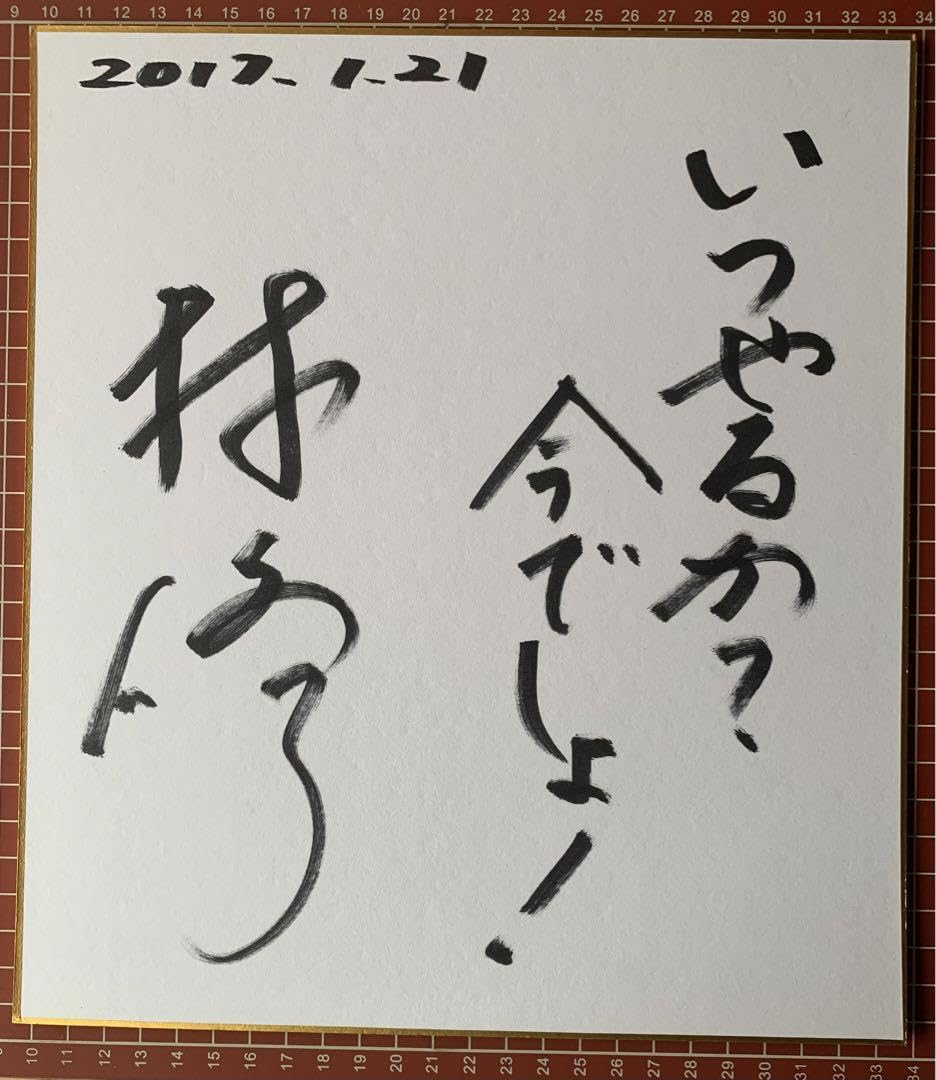 2017.1.21
いつやるか?
今でしょ!
林修
9 10 11 12 13 14 15 16 17 18 19 20 21 22 23 24 25 26 27 28 29 30 31 32 33 34
10 11 12 13 14 15 16 17 18 19 20 21 22 23 24 25 26 27 28 29 30 31 32 33 34